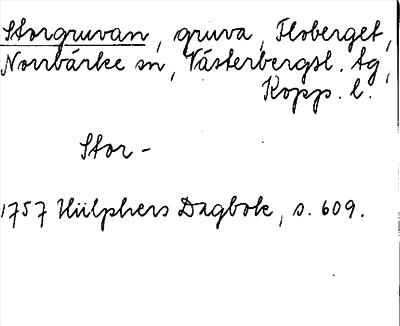 Storgruvan, gruva, Floberget,
Norrbärke sn, Västerbergsl. tg,
Kopp. l.
Stor-
1757 Hülphers Dagbok, s. 609.